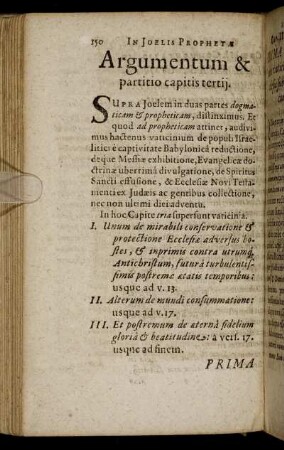 150 IN JOELIS PROPHETÆ
Argumentum &
partitio capitis tertij.
SUPRA Joelem in duas partes dogma-
ticam & propheticam, distinximus. Et
quod ad propheticam attinet, audivi-
mus hactenus vaticinium de populi Israë-
litici è captivitate Babylonicâ reductione,
deque Messiæ exhibitione, Evangelicæ do-
ctrinæ uberrima divulgatione, de Spiritus
Sancti effusione, & Ecclesiæ Novi Testa-
menti ex Judæis ac gentibus collectione,
nec non ultimi diei adventu.
In hoc Capite tria supersunt vaticinia.
I. Unum de mirabili conservatione &
protectione Ecclesiæ adversus ho-
stes, & inprimis contra utrumq;
Antichristum, futurâ turbulentis-
simis postremæ ætatis temporibus:
usque ad v. 13.
II. Alterum de mundi consummatione:
usque ad v. 17.
III. Et postremum de æternâ fidelium
gloriâ & beatitudine: à vers. 17.
usque ad finem.
PRIMA